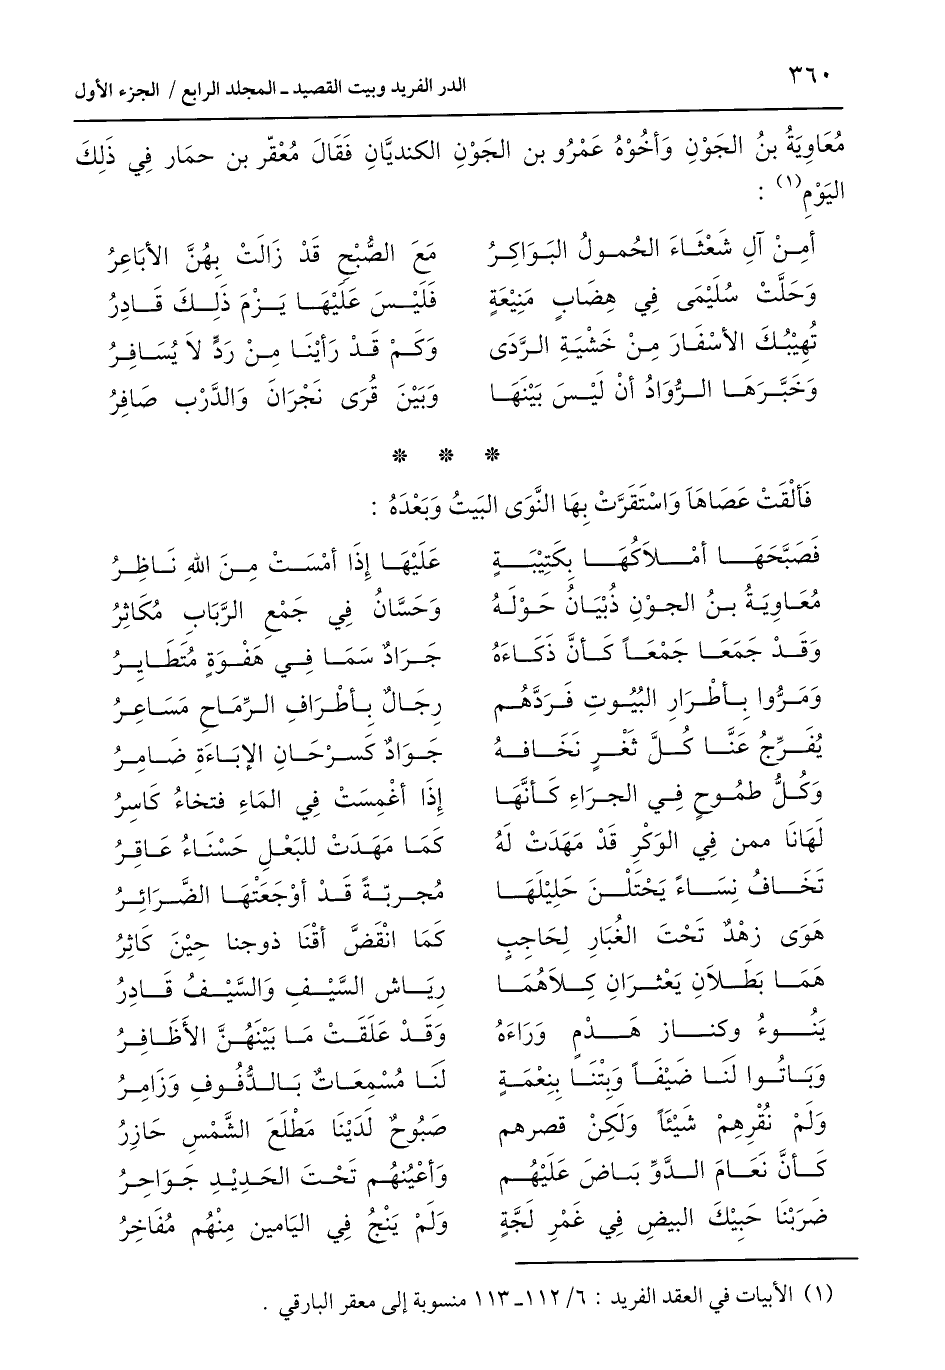 ٣٦٠
الدر الفريد وبيت القصيد ـ المجلد الرابع / الجزء الأول
مُعَاوِيَةُ بنُ الجَوْنِ وَأخُوْهُ عَمْرُو بن الجَوْنِ الكنديَّانِ فَقَالَ مُعْقّر بن حمَار فِي ذَلِكَ
اليَوْمِ(١) :
أمِنْ آلِ شَعْثَاءَ الحُمولُ البَوَاكِرُ مَعَ الصُّبْحِ قَدْ زَالَتْ بِهُنَّ الأبَاعِرُ
وَحَلَّتْ سُلَيْمَى فِي هِضَابٍ مَنِيْعَةٍ فَلَيْسَ عَلَيْهَا يَزْمَ ذَلِكَ قَادِرُ
تُهيْبُكَ الأسْفَارَ مِنْ خَشْيَةِ الرَّدَى وَكَمْ قَدْ رَأيْنَا مِنْ رَدٍّ لاَ يُسَافِرُ
وَخَبَّرَهَا الرُّوَادُ أنْ لَيْسَ بَيْنَهَا وَبَيْنَ قُرَى نَجْرَانَ وَالدَّرْبِ صَافِرُ
* * *
فَألْقَتْ عَصَاهَا وَاسْتَقَرَّتْ بِهَا النَّوَى البَيتُ وَبَعْدَهُ :
فَصَبَّحَهَا أمْلاَكُهَا بِكَتِيْبَةٍ عَلَيْهَا إذَا أمْسَتْ مِنَ اللهِ نَاظِرُ
مُعَاوِيَةُ بنُ الجوْنِ ذُبْيَانُ حَوْلَهُ وَحَسَّانُ فِي جَمْعِ الرَّبَابِ مُكَاثِرُ
وَقَدْ جَمَعَا جَمْعَاً كَأنَّ ذَكَاءَهُ جَرَادٌ سَمَا فِي هَفْوَةٍ مُتَطَايِرُ
وَمَرُّوا بِأطْرَارِ البُيُوتِ فَرَدَّهُم رِجَالٌ بِأطْرَافِ الرِّمَاحِ مَسَاعِرُ
يُفَرِّجُ عَنَّا كُلَّ ثَغْرٍ نَخَافهُ جَوَادٌ كَسِرْحَانِ الإبَاءَةِ ضَامِرُ
وَكُلُّ طمُوحٍ فِي الجرَاءِ كَأنَّهَا إذَا أغْمِسَتْ فِي المَاءِ فتخَاءُ كَاسِرُ
لَهَا نَا ممن فِي الوَكْرِ قَدْ مَهَدَتْ لَهُ كَمَا مَهَدَتْ للبَعْلِ حَسْنَاءُ عَاقِرُ
تَخَافُ نِسَاءً يَخْتَلِنَ حَلِيْلهَا مُجربّةً قَدْ أوْجَعَتْهَا الضَّرَائِرُ
هَوَى زهْدٌ تَحْتَ الغُبَارِ لِحَاجِبٍ كَمَا انْقَضَّ أقْنَا ذو جنا حِيْنَ كَاثِرُ
هُمَا بَطَلاَنِ يَعْثرَانِ كِلاَهُمَا رِيَاش السَّيْفِ وَالسَّيْفُ قَادِرُ
يَنُوءُ وكنازِ هَدْمِ وَرَاءَهُ وَقَدْ عَلَقَتْ مَا بَيْنَهُنَّ الأظَافِرُ
وَبَاتُوا لَنَا ضَيْفَاً وَبِتْنَا بِنِعْمَةٍ لَنَا مُسْمِعَاتٌ بَالدُّفُوفِ وَزَامِرُ
وَلَمْ نُقْرِهِمْ شَيْئَاً وَلَكِنْ قصرهم صَبُوحٌ لَدَيْنَا مَطْلَعَ الشَّمْسِ حَازِرُ
كَأنَّ نَعَامَ الدَّوِّ بَاضَ عَلَيْهُم وَأعْيُنَهُم تَحْتَ الحَدِيْدِ جَوَاحِرُ
ضَرَبْنَا حَبِيْكَ البيضِ فِي غَمْرِ لَجَّةٍ وَلَمْ يَنْجُ فِي اليَامين مِنْهُم مُفَاخِرُ
(١) الأبيات في العقد الفريد : ٦/ ١١٢ـ١١٣ منسوبة إلى معقر البارقي .